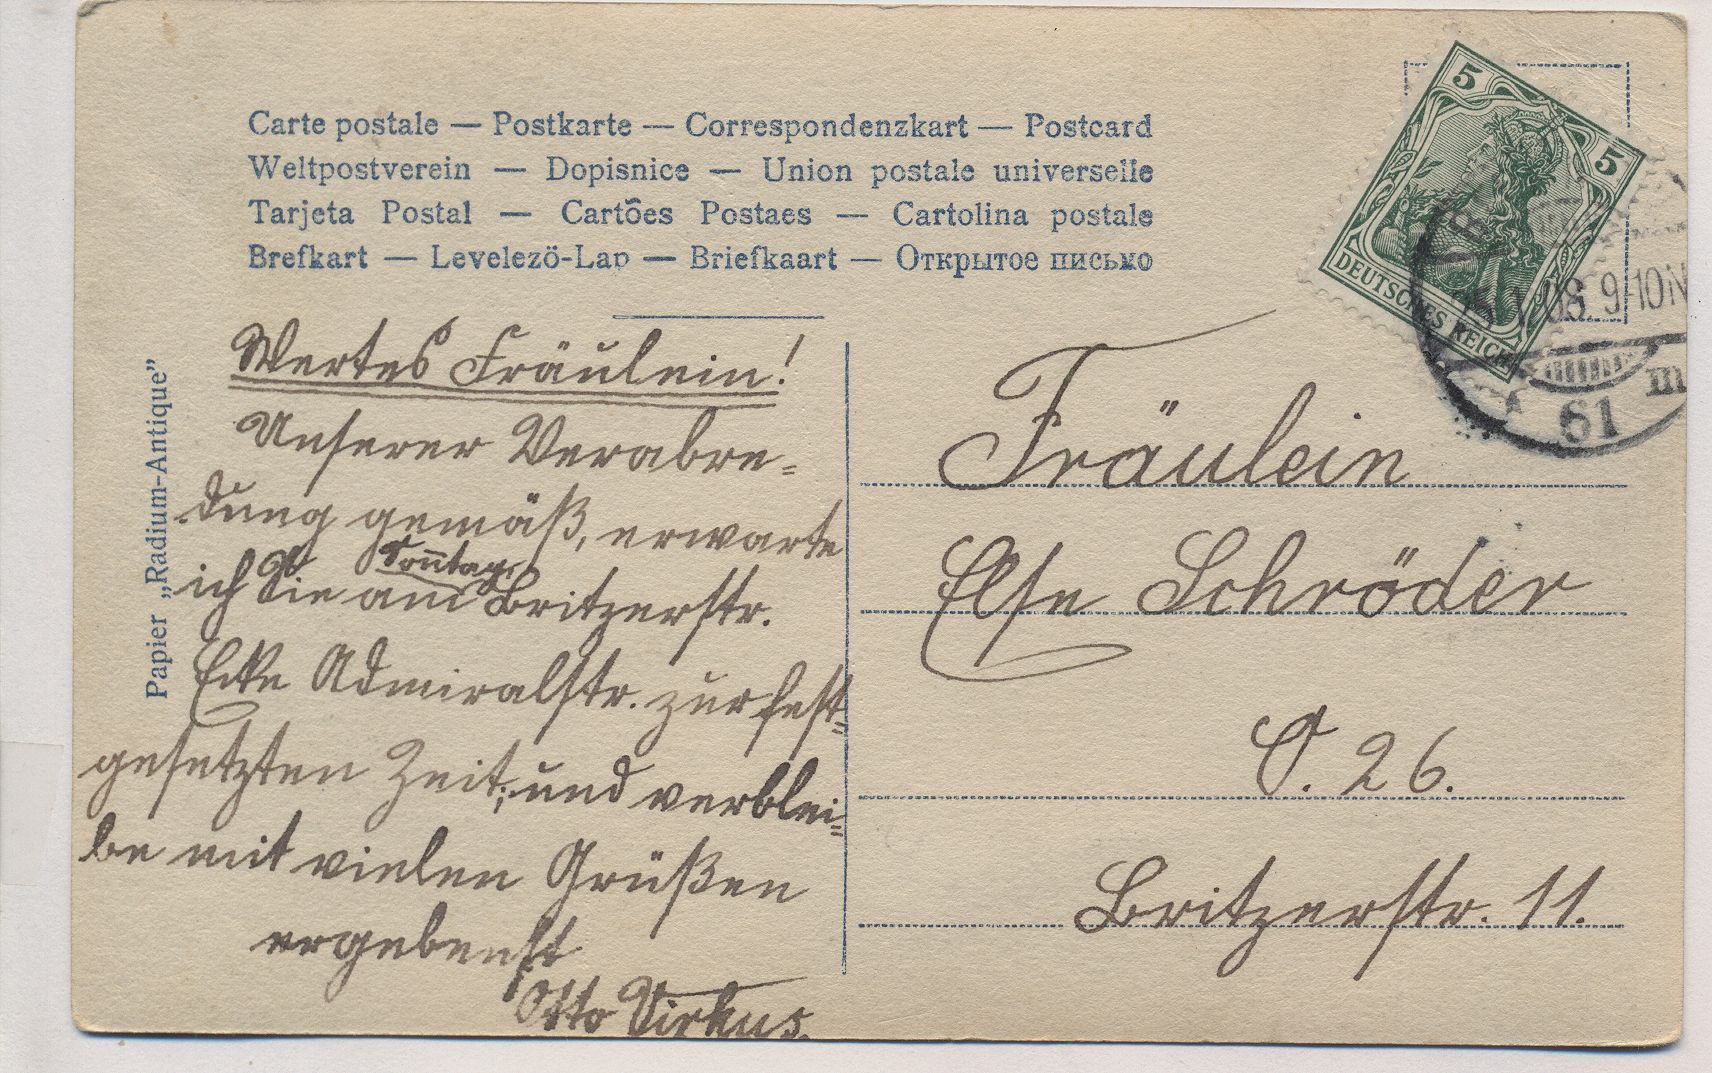 Carte postale — Postkarte — Correspondenzkart — Postcard
Weltpostverein — Dopisnice — Union postale universelle
Tarjeta Postal — Cartões Postaes — Cartolina postale
Brefkart — Levelezö-Lap — Briefkaart — Открытое письмо
Papier „Radium-Antique”
Wertes Fräulein!
Unserer Verabre-
dung gemäß, erwarte
ich Sie am Sonntag Britzerstr.
Ecke Admiralstr. zur fest-
gesetzten Zeit, und verblei-
be mit vielen Grüßen
ergebenst
Otto Virkus.
5
5
DEUTSCHES REICH
08. 9-10N
61
Fräulein
Else Schröder
O. 26.
Britzerstr. 11.